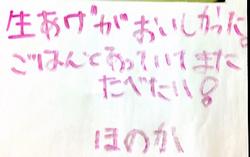 生あげがおいしかった。
ごはんとあっていてまた
たべたい!
ほのか